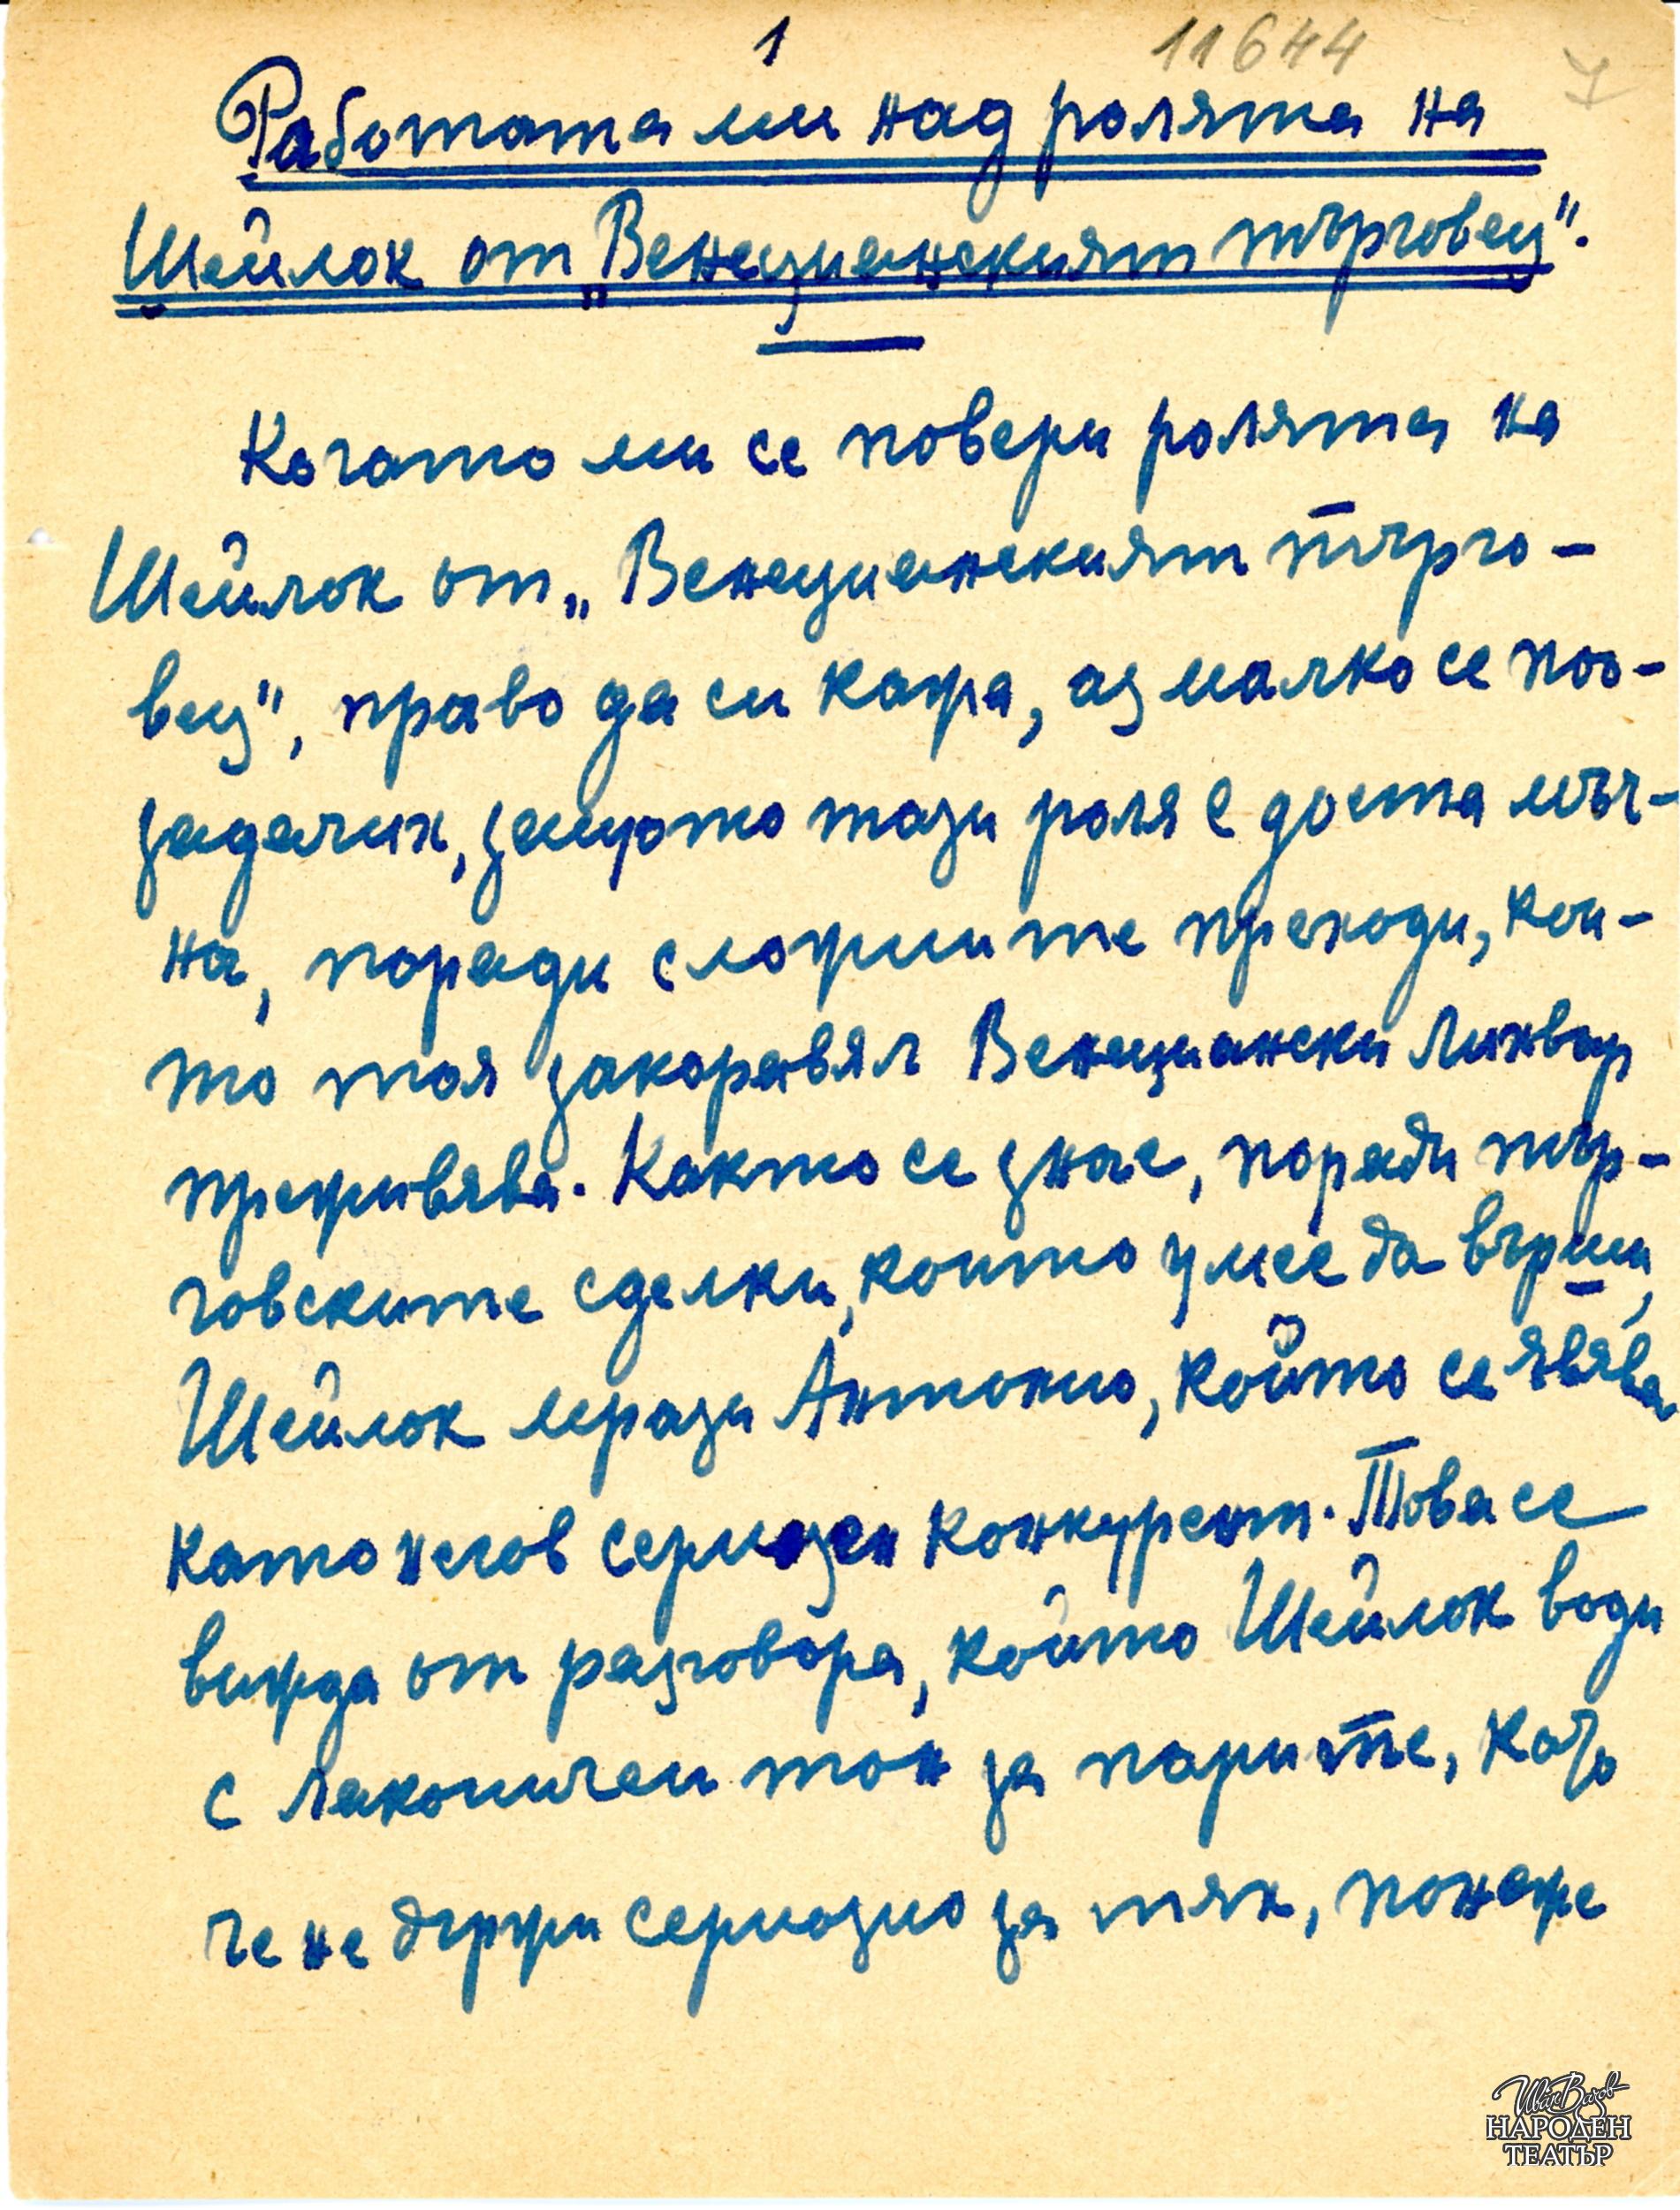 1
11644
Работата ми над ролята на
Шейлок от „Венецианският търговец".
Когато ми се повери ролята на
Шейлок от „Венецианският търго-
вец", право да си кажа, аз малко се поо-
задачих, защото тази роля е доста мъч-
на, поради сложните преходи, кои-
то тоя закоравял Венециански лихвар
преживява. Както се знае, поради тър-
говските сделки, които умее да върши,
Шейлок мрази Антонио, който се явява
като негов сериозен конкурент. Това се
вижда от разговора, който Шейлок води
с лаконичен тон за парите, като
че не държи сериозно за тях, понеже
Иван Вазов
НАРОДЕН
ТЕАТЪР